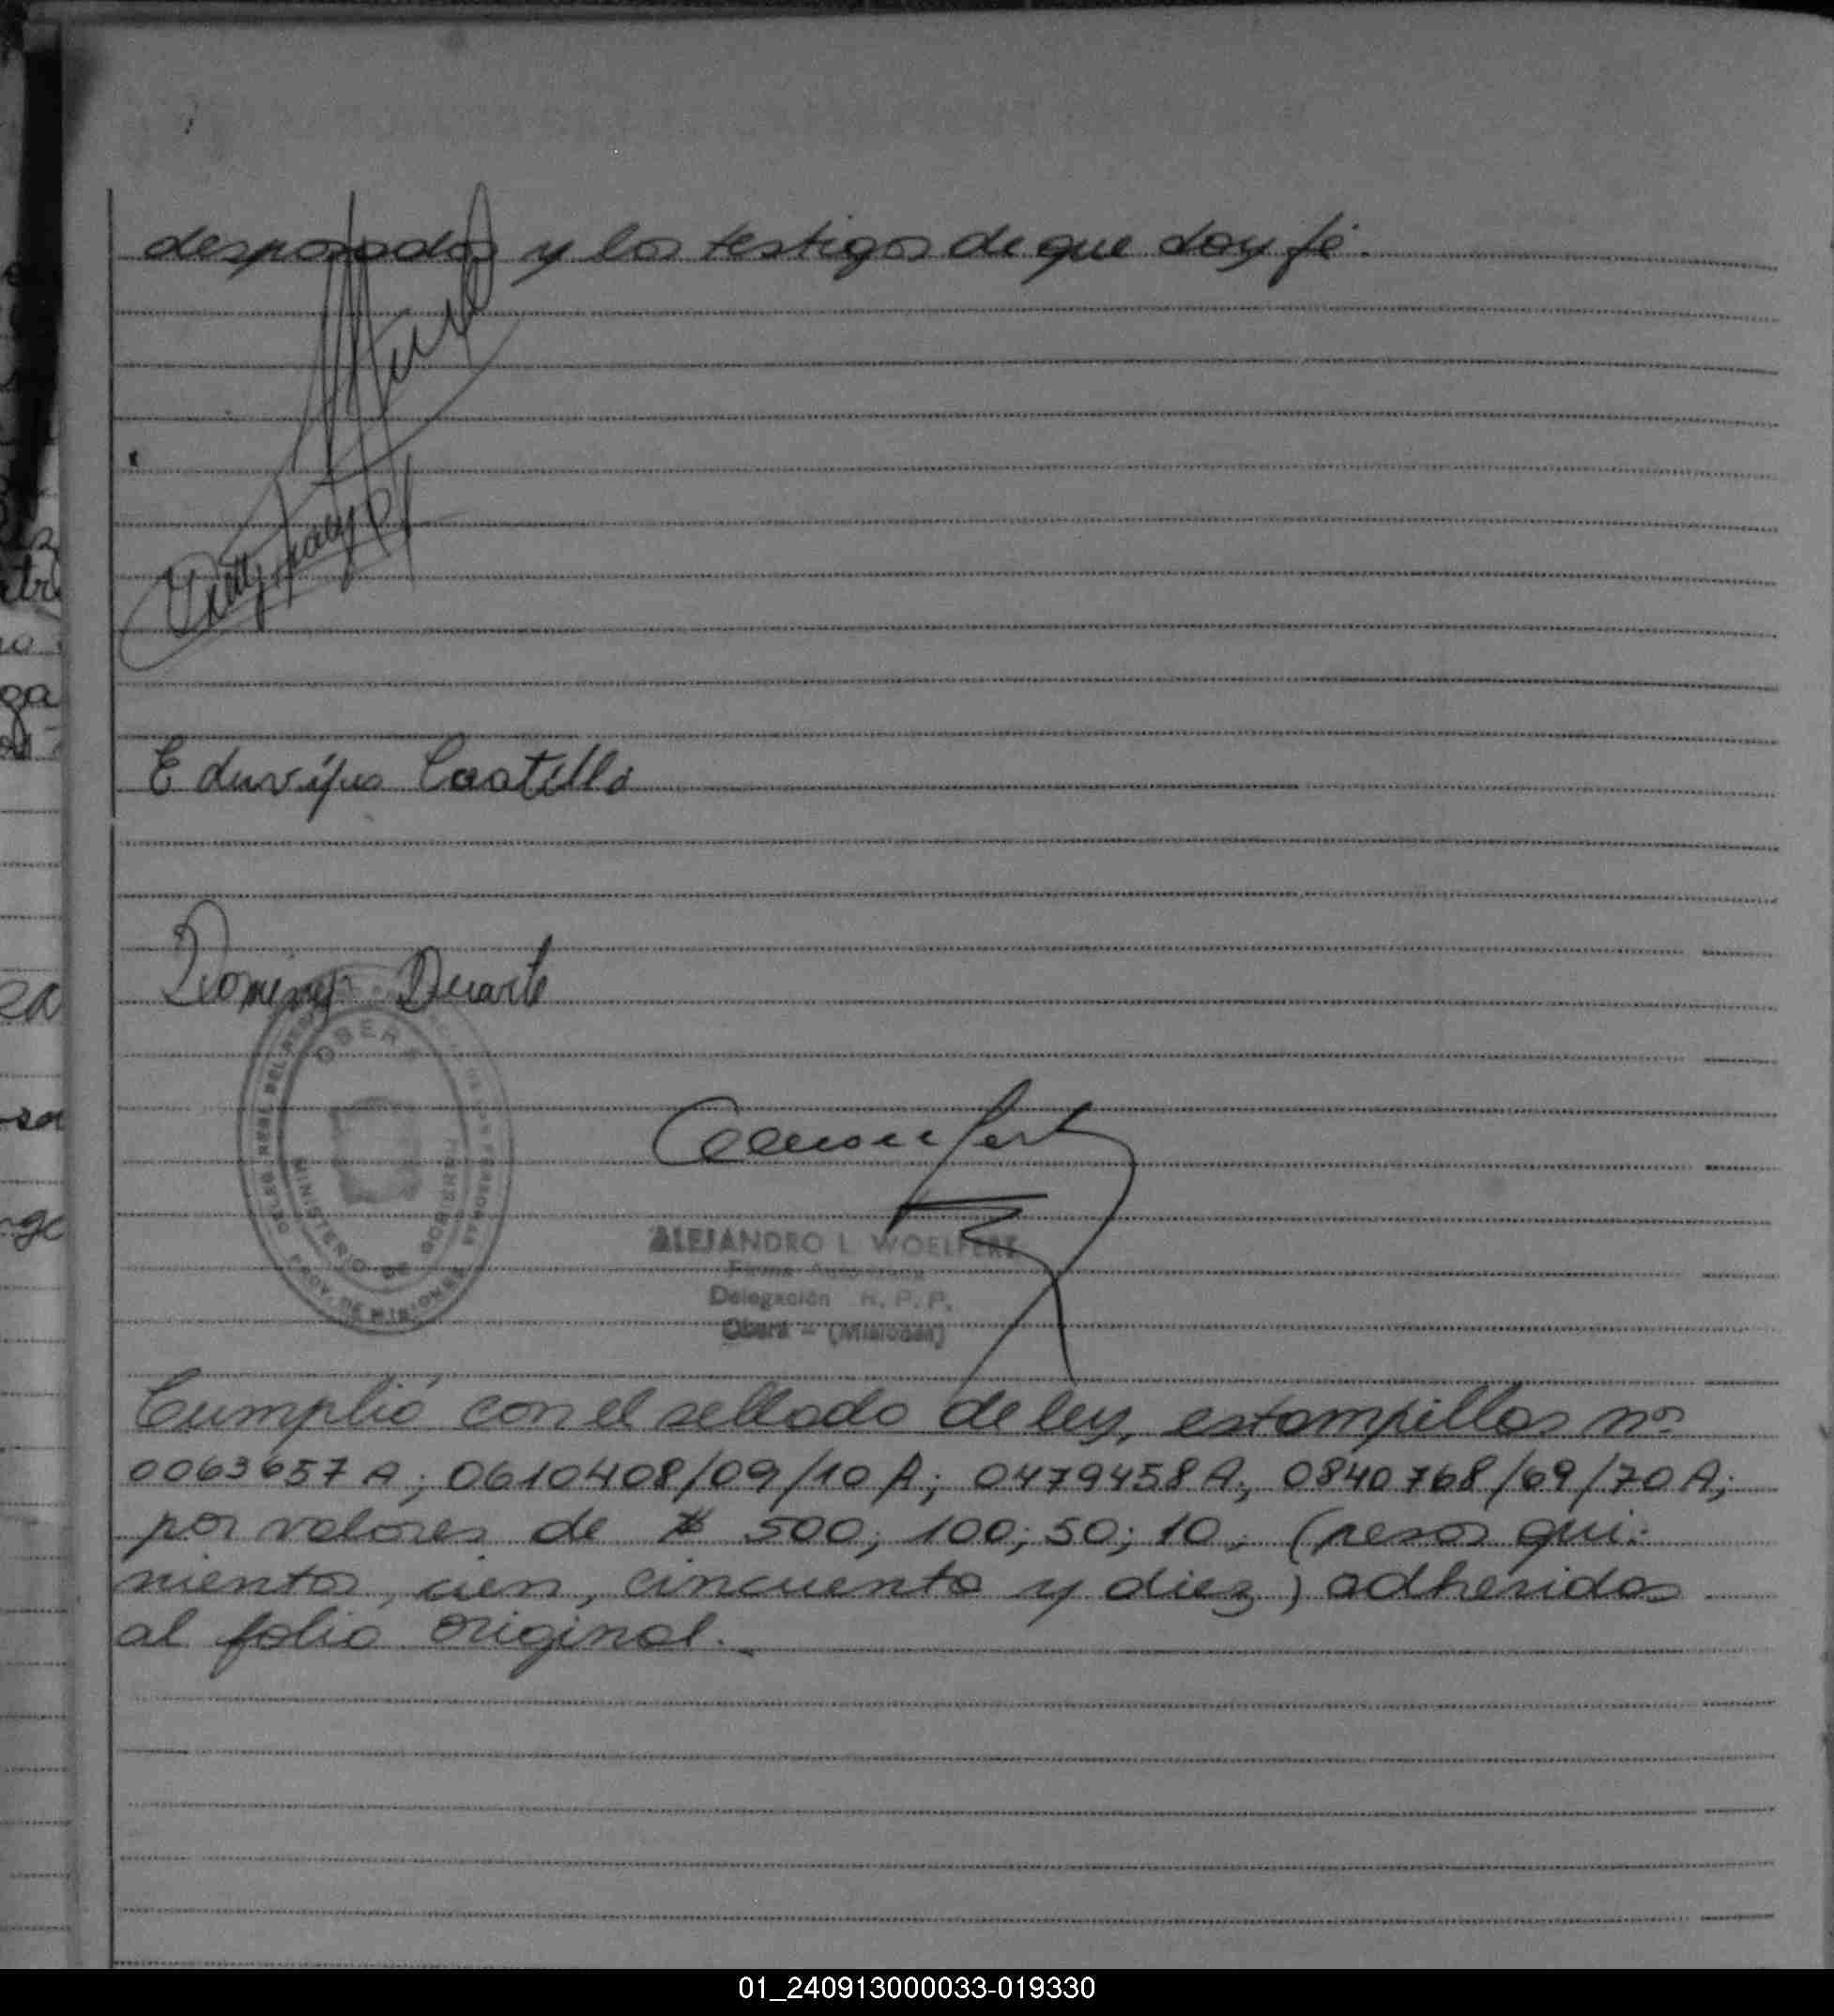 desposados y los testigos de que doy fé.
Eduviges Castillo
Domingo Duarte
OBERA
MINISTERIO DE GOBIERNO
PROV. DE MISIONES
ALEJANDRO L. WOELFERT
Firma Autorizada
Delegación R. P. P.
Oberá - (Misiones)
Cumplió con el sellado de ley, estampillas nos
0063657 A; 0610408/09/10 A; 0479458 A; 0840768/69/70 A;
por valores de $ 500; 100; 50; 10; (pesos qui-
nientos, cien, cincuenta y diez) adheridas
al folio original.
01_240913000033-019330